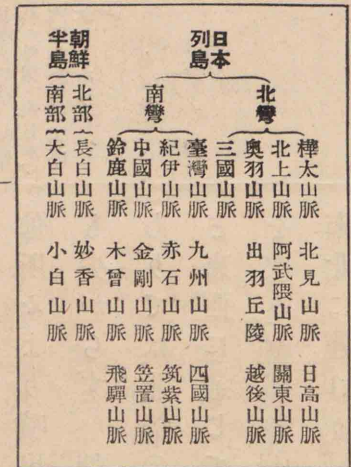 日本列島
北彎
樺太山脈 北見山脈 日高山脈
北上山脈 阿武隈山脈 關東山脈
奥羽山脈 出羽丘陵 越後山脈
三國山脈
南彎
臺灣山脈 九州山脈 四國山脈
紀伊山脈 赤石山脈 筑紫山脈
中國山脈 金剛山脈 笠置山脈
鈴鹿山脈 木曾山脈 飛驒山脈
朝鮮半島
北部 長白山脈 妙香山脈
南部 大白山脈 小白山脈